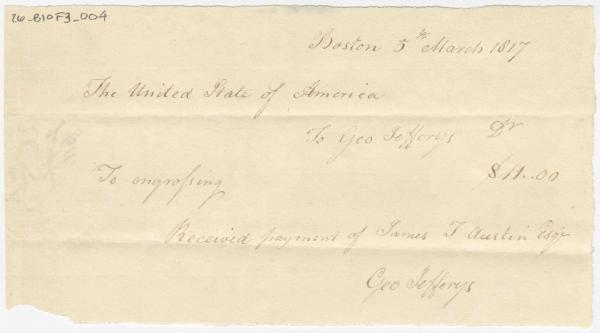 26_B10F3_004
Boston 5th March 1817
The United State of America
To Geo Jefferys Dr
To engrossing $11.00
Received payment of James T Austin Esqr
Geo Jefferys